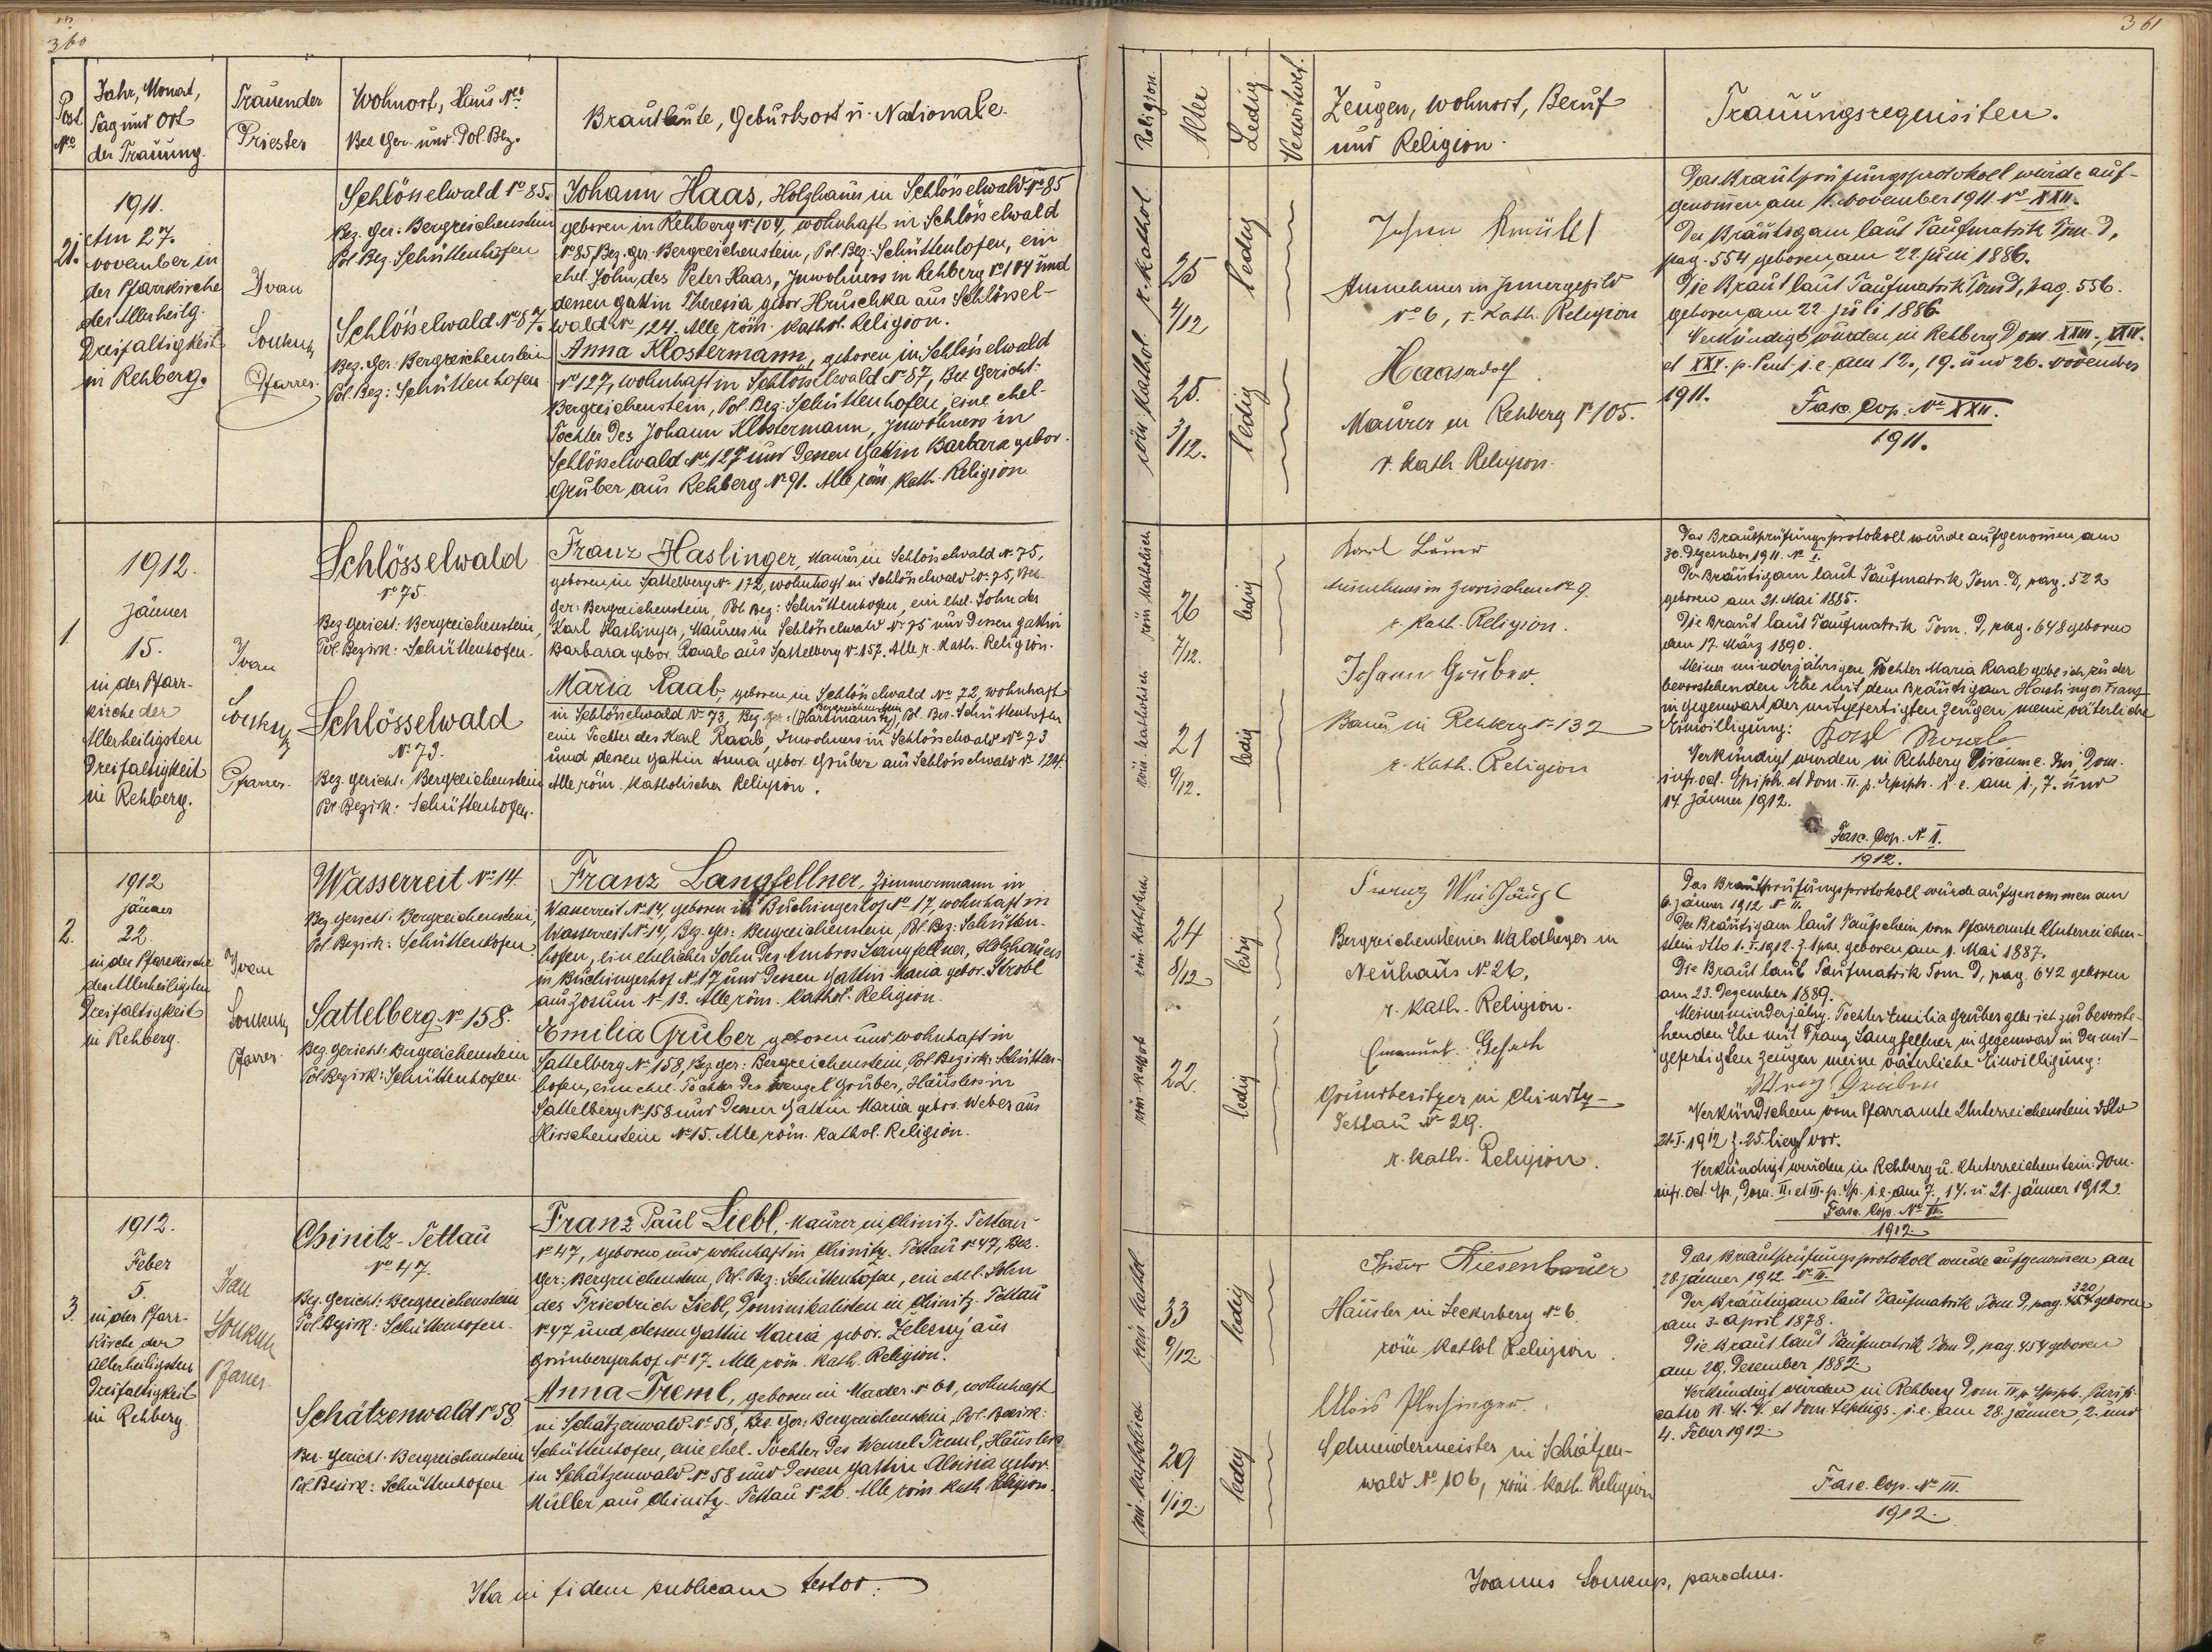 360
Post
No.
Jahr, Monat,
Tag und Ort
der Trauung.
Trauender
Priester
Wohnort, Haus No.
Bez. Ger. und Pol. Bez.
Brautleute, Geburtsort u. Nationale.
21.
1911.
Am 27.
November in
der Pfarrkirche
der Allerheilg.
Dreifaltigkeit
in Rehberg.
Ivan
Soukup
Pfarrer.
Schlösselwald No 85.
Bez. Ger.: Bergreichenstein
Pol. Bez. Schüttenhofen
Schlösselwald No 87.
Bez. Ger. Bergreichenstein
Pol. Bez.: Schüttenhofen
Johann Haas, Holzhauer in Schlösselwald No 85
geboren in Rehberg No 104, wohnhaft in Schlösselwald
No 85, Bez. Ger. Bergreichenstein, Pol. Bez. Schüttenhofen, ein
ehel. Sohn des Peter Haas, Inwohners in Rehberg No 104 und
dessen Gattin Theresia, gebor. Hruschka aus Schlössel-
wald No 124. Alle röm. kathol. Religion.
Anna Klostermann, geboren in Schlösselwald
No 127, wohnhaft in Schlösselwald No 87, Bez. Gericht:
Bergreichenstein, Pol. Bez. Schüttenhofen, eine ehel.
Tochter des Johann Klostermann, Inwohners in
Schlösselwald No 127 und dessen Gattin Barbara gebor.
Gruber aus Rehberg No 91. Alle röm. kath. Religion
1
1912.
Jänner
15.
in der Pfarr-
kirche der
Allerheiligsten
Dreifaltigkeit
in Rehberg.
Ivan
Soukup
Pfarrer.
Schlösselwald
No 75.
Bez. Gericht: Bergreichenstein,
Pol. Bezirk: Schüttenhofen.
Schlösselwald
No 73.
Bez. Gericht: Bergreichenstein
Pol. Bezirk: Schüttenhofen.
Franz Haslinger, Maurer in Schlösselwald No 75,
geboren in Sattelberg No 172, wohnhaft in Schlösselwald No 75, Bez.
Ger: Bergreichenstein, Pol. Bez: Schüttenhofen, ein ehel. Sohn des
Karl Haslinger, Maurers in Schlösselwald No 75 und dessen Gattin
Barbara gebor. Raab aus Sattelberg No 157. Alle r. kath. Religion.
Maria Raab, geboren in Schlösselwald No 72, wohnhaft
Bergreichenstein
in Schlösselwald No 73, Bez. Ger: (Hartmanitz), Pol. Bez. Schüttenhofen
eine Tochter des Karl Raab, Inwohners in Schlösselwald No 73
und dessen Gattin Anna gebor. Gruber aus Schlösselwald No 124.
Alle röm. katholischer Religion.
2.
1912
Jänner
22.
in der Pfarrkirche
der Allerheiligsten
Dreifaltigkeit
in Rehberg.
Ivan
Soukup
Pfarrer
Wasserreit No 14.
Bez. Gericht: Bergreichenstein,
Pol. Bezirk: Schüttenhofen
Sattelberg No 158.
Bez. Gericht: Bergreichenstein
Pol. Bezirk: Schüttenhofen.
Franz Langfellner, Zimmermann in
Wasserreit No 14, geboren in Buchingerhof No 17, wohnhaft in
Wasserreit No 14, Bez. Ger: Bergreichenstein, Pol. Bez: Schütten-
hofen, ein ehelicher Sohn des Ambros Langfellner, Holzhauers
in Buchingerhof No 17 und dessen Gattin Maria gebor. Strobl
aus Zosum No 13. Alle röm. kathol. Religion.
Emilia Gruber, geboren und wohnhaft in
Sattelberg No 158, Bez. Ger: Bergreichenstein, Pol. Bezirk: Schütten-
hofen, eine ehel. Tochter des Wenzel Gruber, Häuslers in
Sattelberg No 158 und dessen Gattin Maria gebor. Weber aus
Kirschenstein No 15. Alle röm. kathol. Religion.
3.
1912.
Feber
5.
in der Pfarr-
kirche der
Allerheiligsten
Dreifaltigkeit
in Rehberg
Ivan
Soukup
Pfarrer
Chinitz-Tettau
No 47.
Bez. Gericht: Bergreichenstein
Pol. Bezirk: Schüttenhofen.
Schätzenwald No 58
Bez. Gericht. Bergreichenstein
Pol. Bezirk: Schüttenhofen
Franz Paul Liebl, Maurer in Chinitz-Tettau
No 47, geboren und wohnhaft in Chinitz-Tettau No 47, Bez.
Ger: Bergreichenstein, Pol. Bez: Schüttenhofen, ein ehel. Sohn
des Friedrich Liebl, Dominikalisten in Chinitz-Tettau
No 47 und dessen Gattin Maria gebor. Železný aus
Grünbergerhof No 17. Alle röm. kath. Religion.
Anna Treml, geboren in Mader No 60, wohnhaft
in Schätzenwald No 58, Bez. Ger: Bergreichenstein, Pol. Bezirk:
Schüttenhofen, eine ehel. Tochter des Wenzel Treml, Häuslers
in Schätzenwald No 58 und dessen Gattin Aloisia gebor.
Müller aus Chinitz-Tettau No 26. Alle röm. kath. Religion.
Ita in fidem publicam testor:
361
Religion.
Alter
Ledig
Verwitwet.
Zeugen, Wohnort, Beruf
und Religion.
Trauungsrequisiten.
r. kathol.
25
4/12
ledig
röm. kathol.
25.
3/12.
ledig
Johann
Ausnehmer in Innergefild
No 6, r. kath. Religion
Haas Adolf
Maurer in Rehberg No 105.
r. kath. Religion.
Das Brautprüfungsprotokoll wurde auf-
genommen am 11. November 1911 No XXII.
Der Bräutigam laut Taufmatrik Tom. D,
pag. 554 geboren am 22. Juni 1886.
Die Braut laut Taufmatrik Tom D, pag. 556.
geboren am 22. Juli 1886.
Verkündigt wurden in Rehberg Dom. XXIII., XXIV.
et XXV. p. Pent. i. e. am 12., 19. und 26. November
1911.
Fasc. Cop. No XXII.
1911.
röm. katholisch
26
7/12.
ledig
röm. katholisch
21
9/12.
ledig
Karl
Ausnehmer in Zwoischen No 9.
r. kath. Religion.
Johann Gruber
Bauer in Rehberg No 132
r. kath. Religion
Das Brautprüfungsprotokoll wurde aufgenommen am
30. Dezember 1911. No I.
Der Bräutigam laut Taufmatrik Tom. D, pag. 522
geboren am 21. Mai 1885.
Die Braut laut Taufmatrik Tom. D, pag. 648 geboren
am 17. März 1890.
Meiner minderjährigen Tochter Maria Raab gebe ich zu der
bevorstehenden Ehe mit dem Bräutigam Haslinger Franz
in Gegenwart der mitgefertigten Zeugen meine väterliche
Einwilligung: Karl Raab
Verkündigt wurden in Rehberg Circumc. Dni, Dom.
infr. oct. Epiph. et Dom. II. p. Epiph. i. e. am 1., 7. und
14. Jänner 1912.
Fasc. Cop. No I.
1912.
röm. katholisch
24
8/12
ledig
röm. kathol.
22.
ledig
Franz
Bergreichensteiner Waldheger in
Neuhaus No 26.
r. kath. Religion.
Emanuel
Grundbesitzer in Chinitz-
Tettau No 29.
r. kath. Religion.
Das Brautprüfungsprotokoll wurde aufgenommen am
6. Jänner 1912 No II.
Der Bräutigam laut Taufschein vom Pfarramte Unterreichen-
stein dtto 1. I. 1912. Z. geboren am 1. Mai 1887.
Die Braut laut Taufmatrik Tom D, pag. 642 geboren
am 23. Dezember 1889.
Meiner minderjähr. Tochter Emilia Gruber gebe ich zur bevorste-
henden Ehe mit Franz Langfellner, in Gegenwart der mit-
gefertigten Zeugen meine väterliche Einwilligung:
Gruber
Verkündschein vom Pfarramte Unterreichenstein dtto
21. I. 1912 Z. 25 liegt vor.
Verkündigt wurden in Rehberg u. Unterreichenstein: Dom.
infr. Oct. Ep., Dom. II. et III. p. Ep. i. e. am 7., 14. u. 21. Jänner 1912.
Fasc. Cop. No II.
1912.
röm. kathol.
33
9/12
ledig
röm. katholisch
29
1/12.
ledig
Kiesenbauer
Häusler in Seckerberg No 6.
röm. kathol. Religion.
Alois
Schneidermeister in Schätzen-
wald No 106, röm. kath. Religion
Das Brautprüfungsprotokoll wurde aufgenommen am
28. Jänner 1912. No III.
320
Der Bräutigam laut Taufmatrik Tom D, pag. 454 geboren
am 3. April 1878.
Die Braut laut Taufmatrik Tom D, pag. 454 geboren
am 29. Dezember 1882.
Verkündigt wurden in Rehberg Dom. IV. p. Epiph. Purifi-
catio B. M. V. et Dom. Septuags. i. e. am 28. Jänner, 2. und
4. Feber 1912.
Fasc. Cop. No III.
1912.
Joannes Soukup, parochus.